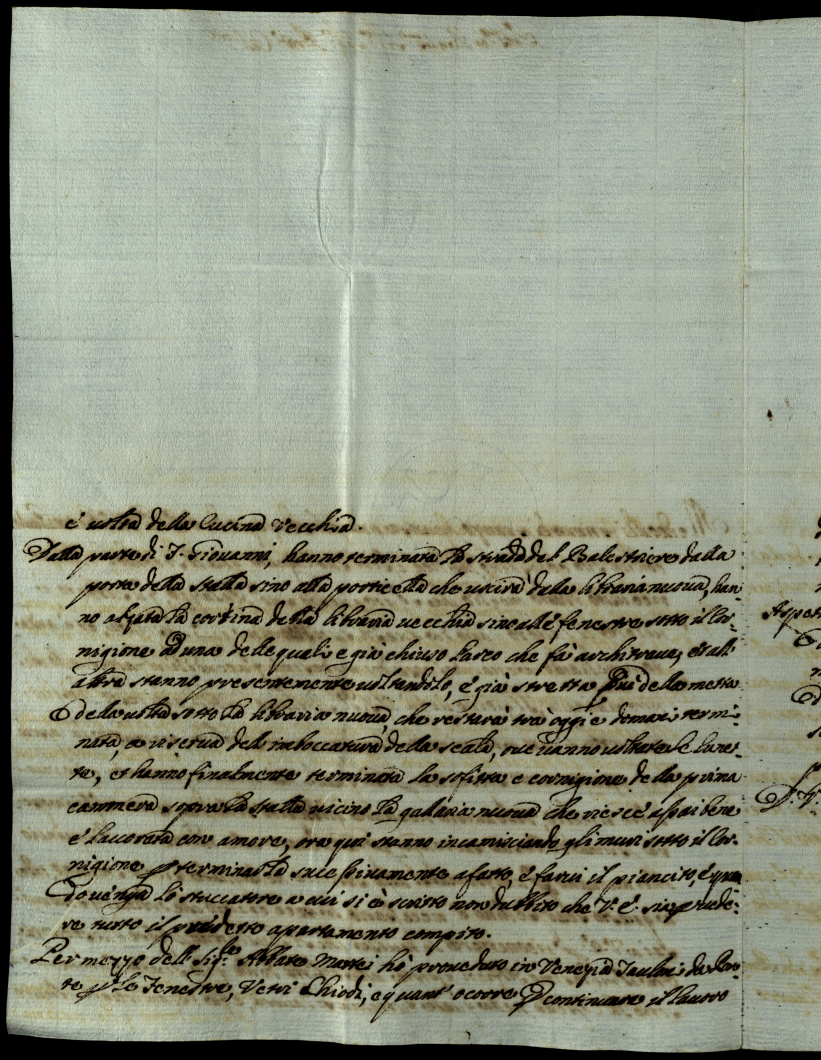 e' uolta della Cucina Vecchia.
Dalla parte di S. Giouanni, hanno terminata la strada del Balestriere dalla
porta della stalla sino alla porticella che uscirà dalla libraria nuoua, han-
no alzata la cortina della libraria uecchia sino alle fenestre sotto il Cor-
nigione ad una delle quali e già chiuso l'arco che fà architraue, et all'
altra stanno presentemente uoltandolo, e' già stretta più della metta
della uolta sotto la libraria nuoua, che restarà trà oggi e domani termi-
nata, a riserua dell' imboccatura della scala, oue uanno uoltate le
ta, et hanno finalmente terminata la sofitta e cornigione della prima
cammera sopra la stalla uicino la galaria nuoua che riesce assai bene
e' lauorata con amore, ora qui stanno incamisciando gli muri sotto il Cor-
nigione p terminarla successiuamente afatto, e' farui il piancito, e' quan
do uenga lo stuccatore a cui si è scritto non dubbito che V. E. sia p uede-
re tutto il predetto apartamento compito.
Per mezzo dell Sig.re Abbate Mattei hò proueduto in Venezia Taulari da
te p le Fenestre, Vetri Chiodi, e quant' ocorre p continuare il lauoro
Aspett